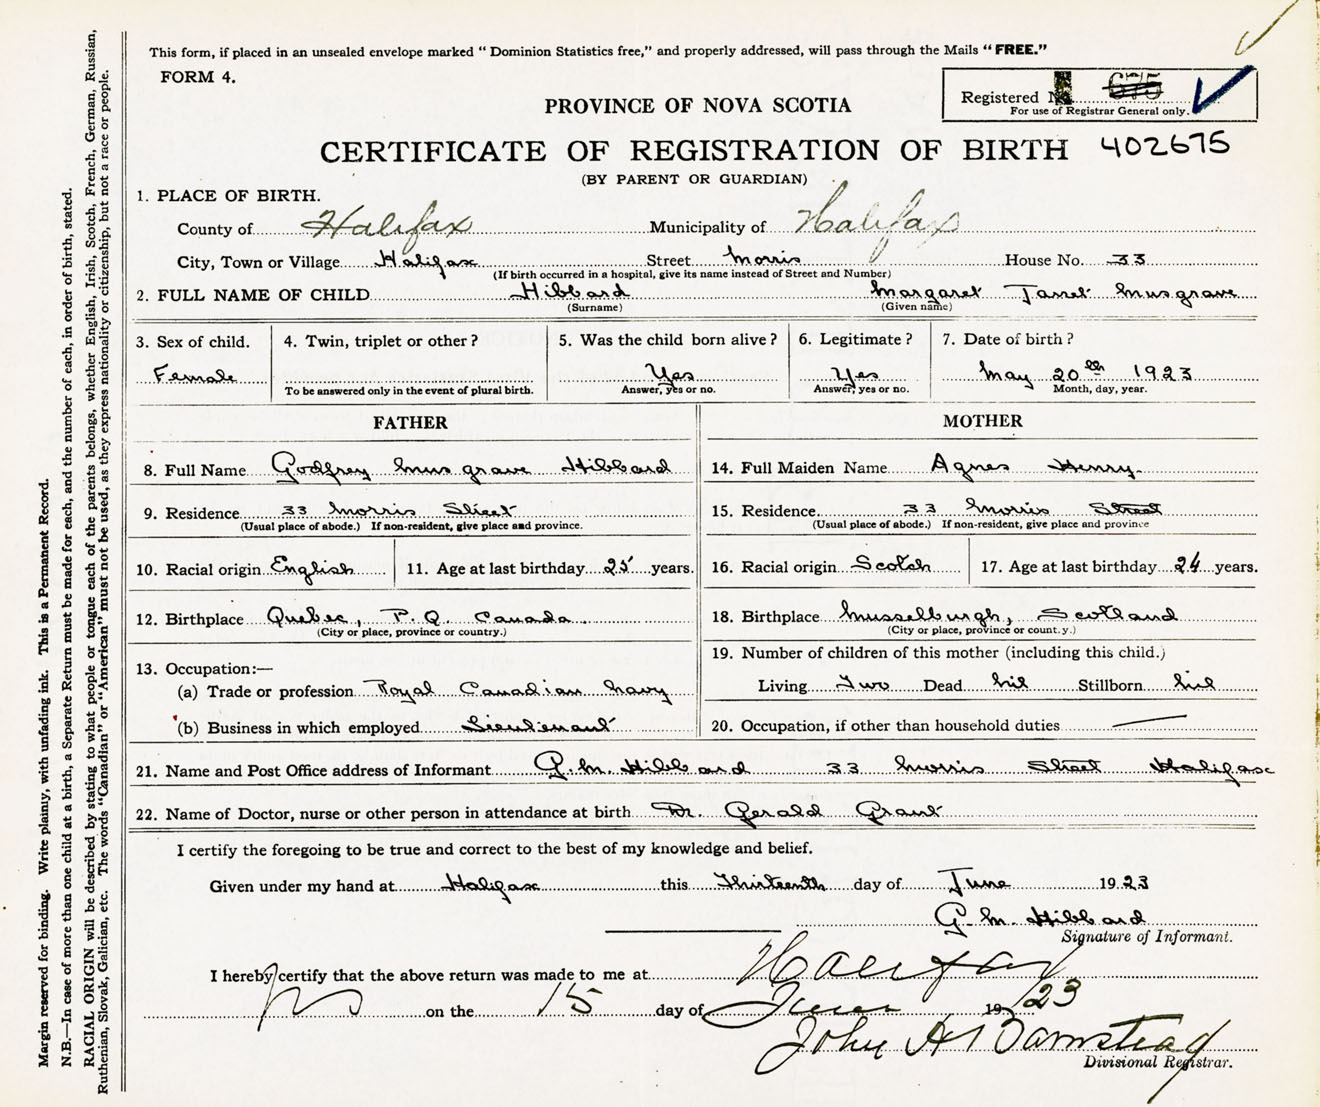 This form, if placed in an unsealed envelope marked "Dominion Statistics free," and properly addressed, will pass through the Mails "FREE."
FORM 4.
Registered No. 675
For use of Registrar General only.
PROVINCE OF NOVA SCOTIA
CERTIFICATE OF REGISTRATION OF BIRTH 402675
(BY PARENT OR GUARDIAN)
1. PLACE OF BIRTH.
County of Halifax Municipality of Halifax
City, Town or Village Halifax Street Morris House No. 33
(If birth occurred in a hospital, give its name instead of Street and Number)
2. FULL NAME OF CHILD Hibbard Margaret Janet Musgrave
(Surname) (Given name)
3. Sex of child. 4. Twin, triplet or other? 5. Was the child born alive? 6. Legitimate? 7. Date of birth?
Female Yes Yes May 20th 1923
To be answered only in the event of plural birth. Answer, yes or no. Answer, yes or no. Month, day, year.
FATHER
8. Full Name Godfrey Musgrave Hibbard
9. Residence 33 Morris Street
(Usual place of abode.) If non-resident, give place and province.
10. Racial origin English 11. Age at last birthday 25 years.
12. Birthplace Quebec, P.Q. Canada
(City or place, province or country.)
13. Occupation:—
(a) Trade or profession Royal Canadian Navy
(b) Business in which employed Lieutenant
MOTHER
14. Full Maiden Name Agnes Henry
15. Residence 33 Morris Street
(Usual place of abode.) If non-resident, give place and province
16. Racial origin Scotch 17. Age at last birthday 24 years.
18. Birthplace Musselburgh, Scotland
(City or place, province or count.y.)
19. Number of children of this mother (including this child.)
Living Two Dead Nil Stillborn Nil
20. Occupation, if other than household duties
21. Name and Post Office address of Informant G.M. Hibbard 33 Morris Street Halifax
22. Name of Doctor, nurse or other person in attendance at birth Dr. Gerald Grant
I certify the foregoing to be true and correct to the best of my knowledge and belief.
Given under my hand at Halifax this Thirteenth day of June 1923
G. M. Hibbard
Signature of Informant.
I hereby certify that the above return was made to me at Halifax
NS on the 15 day of June 1923
John A Barnstead
Divisional Registrar.
Margin reserved for binding. Write plainly, with unfading ink. This is a Permanent Record.
N.B.—In case of more than one child at a birth, a Separate Return must be made for each, and the number of each, in order of birth, stated.
RACIAL ORIGIN will be described by stating to what people or tongue each of the parents belongs, whether English, Irish, Scotch, French, German, Russian,
Ruthenian, Slovak, Galician, etc. The words "Canadian" or "American" must not be used, as they express nationality or citizenship, but not a race or people.